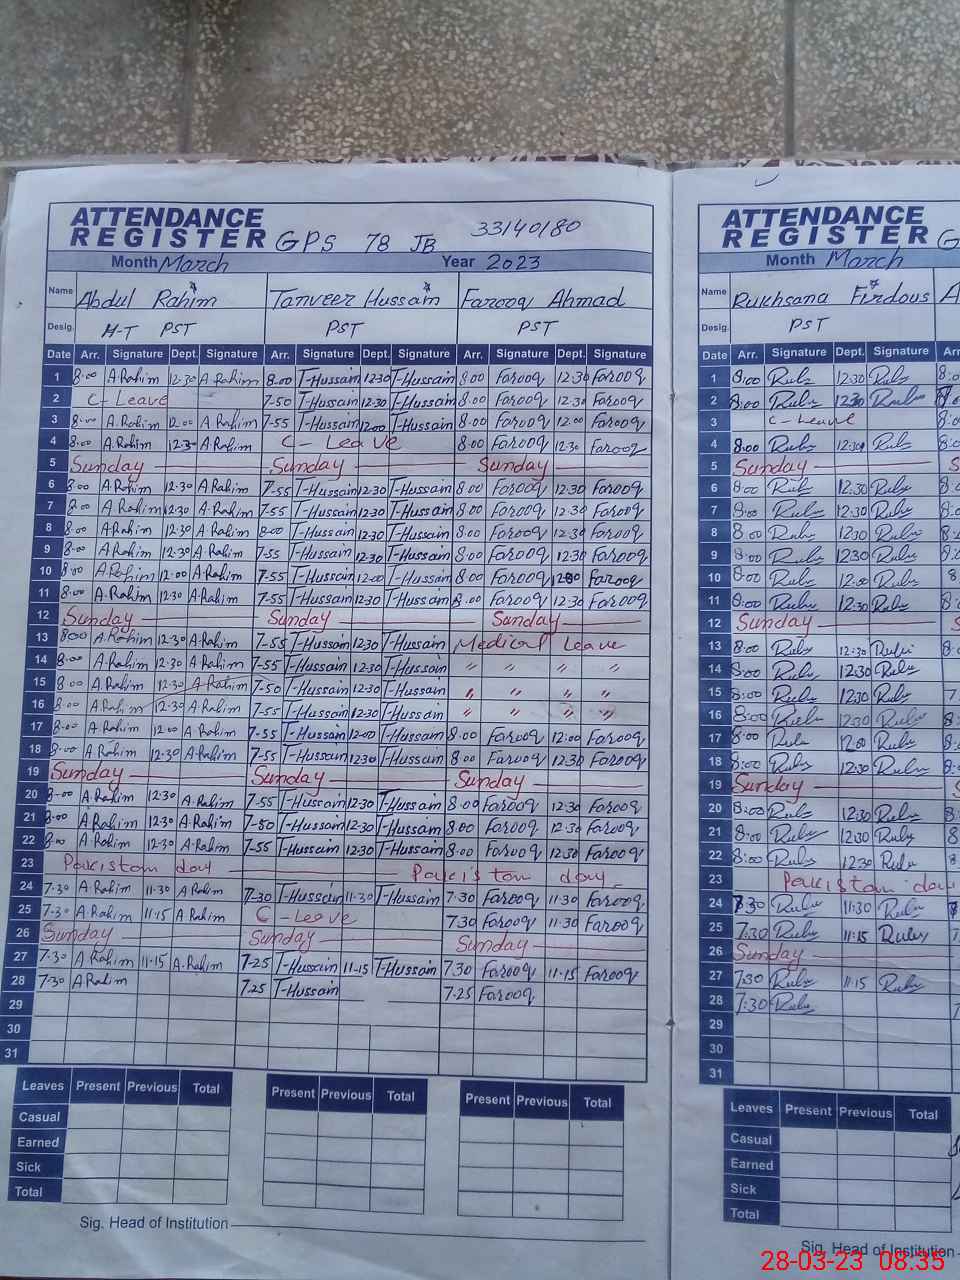 ATTENDANCE
REGISTER GPS 78 JB 33140180
Month March Year 2023
Name Abdul Rahim Tanveer Hussain Farooq Ahmad
Desig. H-T PST PST PST
Date Arr. Signature Dept. Signature Arr. Signature Dept. Signature Arr. Signature Dept. Signature
1 8:00 A.Rahim 12:30 A.Rahim 8-00 T-Hussain 12:30 T-Hussain 8.00 Farooq 12:30 Farooq
2 C-Leave 7-50 T-Hussain 12:30 T-Hussain 8.00 Farooq 12:30 Farooq
3 8:00 A.Rahim 12:00 A.Rahim 7-55 T-Hussain 12:00 T-Hussain 8.00 Farooq 12:00 Farooq
4 8:00 A.Rahim 12:30 A.Rahim C-Leave 8.00 Farooq 12:30 Farooq
5 Sunday Sunday Sunday
6 8:00 A.Rahim 12:30 A.Rahim 7-55 T-Hussain 12:30 T-Hussain 8.00 Farooq 12:30 Farooq
7 8:00 A.Rahim 12:30 A.Rahim 7-55 T-Hussain 12:30 T-Hussain 8.00 Farooq 12:30 Farooq
8 8:00 A.Rahim 12:30 A.Rahim 8-00 T-Hussain 12:30 T-Hussain 8.00 Farooq 12:30 Farooq
9 8:00 A.Rahim 12:30 A.Rahim 7-55 T-Hussain 12:30 T-Hussain 8.00 Farooq 12:30 Farooq
10 8:00 A.Rahim 12:00 A.Rahim 7-55 T-Hussain 12:00 T-Hussain 8.00 Farooq 12:00 Farooq
11 8:00 A.Rahim 12:30 A.Rahim 7-55 T-Hussain 12:30 T-Hussain 8.00 Farooq 12:30 Farooq
12 Sunday Sunday Sunday
13 8:00 A.Rahim 12:30 A.Rahim 7-55 T-Hussain 12:30 T-Hussain Medical Leave
14 8:00 A.Rahim 12:30 A.Rahim 7-55 T-Hussain 12:30 T-Hussain " " " "
15 8:00 A.Rahim 12:30 A.Rahim 7-50 T-Hussain 12:30 T-Hussain " " " "
16 8:00 A.Rahim 12:30 A.Rahim 7-55 T-Hussain 12:30 T-Hussain " " " "
17 8:00 A.Rahim 12:00 A.Rahim 7-55 T-Hussain 12:00 T-Hussain 8.00 Farooq 12:00 Farooq
18 8:00 A.Rahim 12:30 A.Rahim 7-55 T-Hussain 12:30 T-Hussain 8.00 Farooq 12:30 Farooq
19 Sunday Sunday Sunday
20 8:00 A.Rahim 12:30 A.Rahim 7-55 T-Hussain 12:30 T-Hussain 8.00 Farooq 12:30 Farooq
21 8:00 A.Rahim 12:30 A.Rahim 7-50 T-Hussain 12:30 T-Hussain 8.00 Farooq 12:30 Farooq
22 8:00 A.Rahim 12:30 A.Rahim 7-55 T-Hussain 12:30 T-Hussain 8.00 Farooq 12:30 Farooq
23 Pakistan day Pakistan day
24 7.30 A Rahim 11-30 A.Rahim 7-30 T-Hussain 11:30 T-Hussain 7.30 Farooq 11:30 Farooq
25 7-30 A.Rahim 11-15 A Rahim C-Leave 7.30 Farooq 11:30 Farooq
26 Sunday Sunday Sunday
27 7-30 A Rahim 11-15 A.Rahim 7-25 T-Hussain 11-15 T-Hussain 7.30 Farooq 11-15 Farooq
28 7-30 A Rahim 7.25 T-Hussain 7-25 Farooq
29
30
31
Leaves Present Previous Total Present Previous Total Present Previous Total
Casual
Earned
Sick
Total
Sig. Head of Institution
ATTENDANCE
REGISTER G
Month March
Name Rukhsana Firdous A
Desig. PST
Date Arr. Signature Dept. Signature Arr
1 8:00 Rubs 12:30 Rubs 8:0
2 8:00 Rubs 12:30 Rubs 8:0
3 C-Leave 8:0
4 8:00 Rubs 12:30 Rubs 8:0
5 Sunday S
6 8:00 Rubs 12:30 Rubs 8:0
7 8:00 Rubs 12:30 Rubs 8:0
8 8:00 Rubs 12:30 Rubs 8:0
9 8:00 Rubs 12:30 Rubs 8:0
10 8:00 Rubs 12:00 Rubs 8
11 8:00 Rubs 12:30 Rubs 8:
12 Sunday S
13 8:00 Rubs 12:30 Rubs 8:
14 8:00 Rubs 12:30 Rubs
15 8:00 Rubs 12:30 Rubs 7
16 8:00 Rubs 12:30 Rubs 8:
17 8:00 Rubs 12:00 Rubs 8:
18 8:00 Rubs 12:30 Rubs 8:
19 Sunday S
20 8:00 Rubs 12:30 Rubs 8:
21 8:00 Rubs 12:30 Rubs 8:
22 8:00 Rubs 12:30 Rubs 8
23 Pakistan day
24 7:30 Rubs 11:30 Rubs
25 7:30 Rubs 11:15 Rubs 7
26 Sunday
27 7:30 Rubs 11:15 Rubs
28 7:30 Rubs
29
30
31
Leaves Present Previous Total
Casual
Earned
Sick
Total
Sig. Head of Institution
28-03-23 08:35